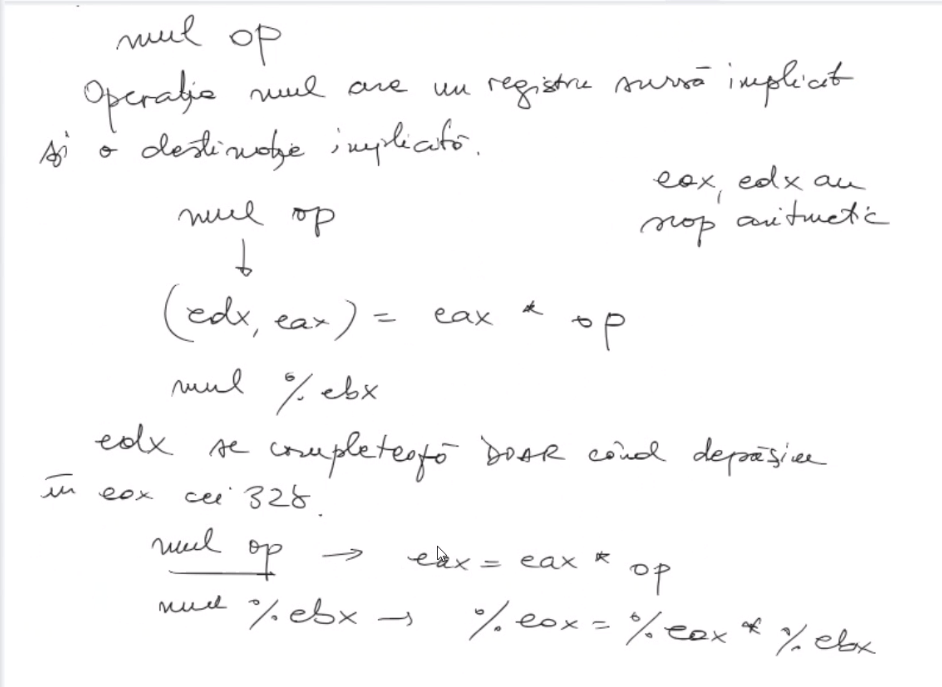 mul op
Operația mul are un registru sursă implicit
și o destinație implicată.
eax, edx au
scop aritmetic
mul op
↓
(edx, eax) = eax * op
mul %ebx
edx se completează DOAR când depășim
în eax cei 32b.
mul op → eax = eax * op
mul %ebx → %eax = %eax * %ebx